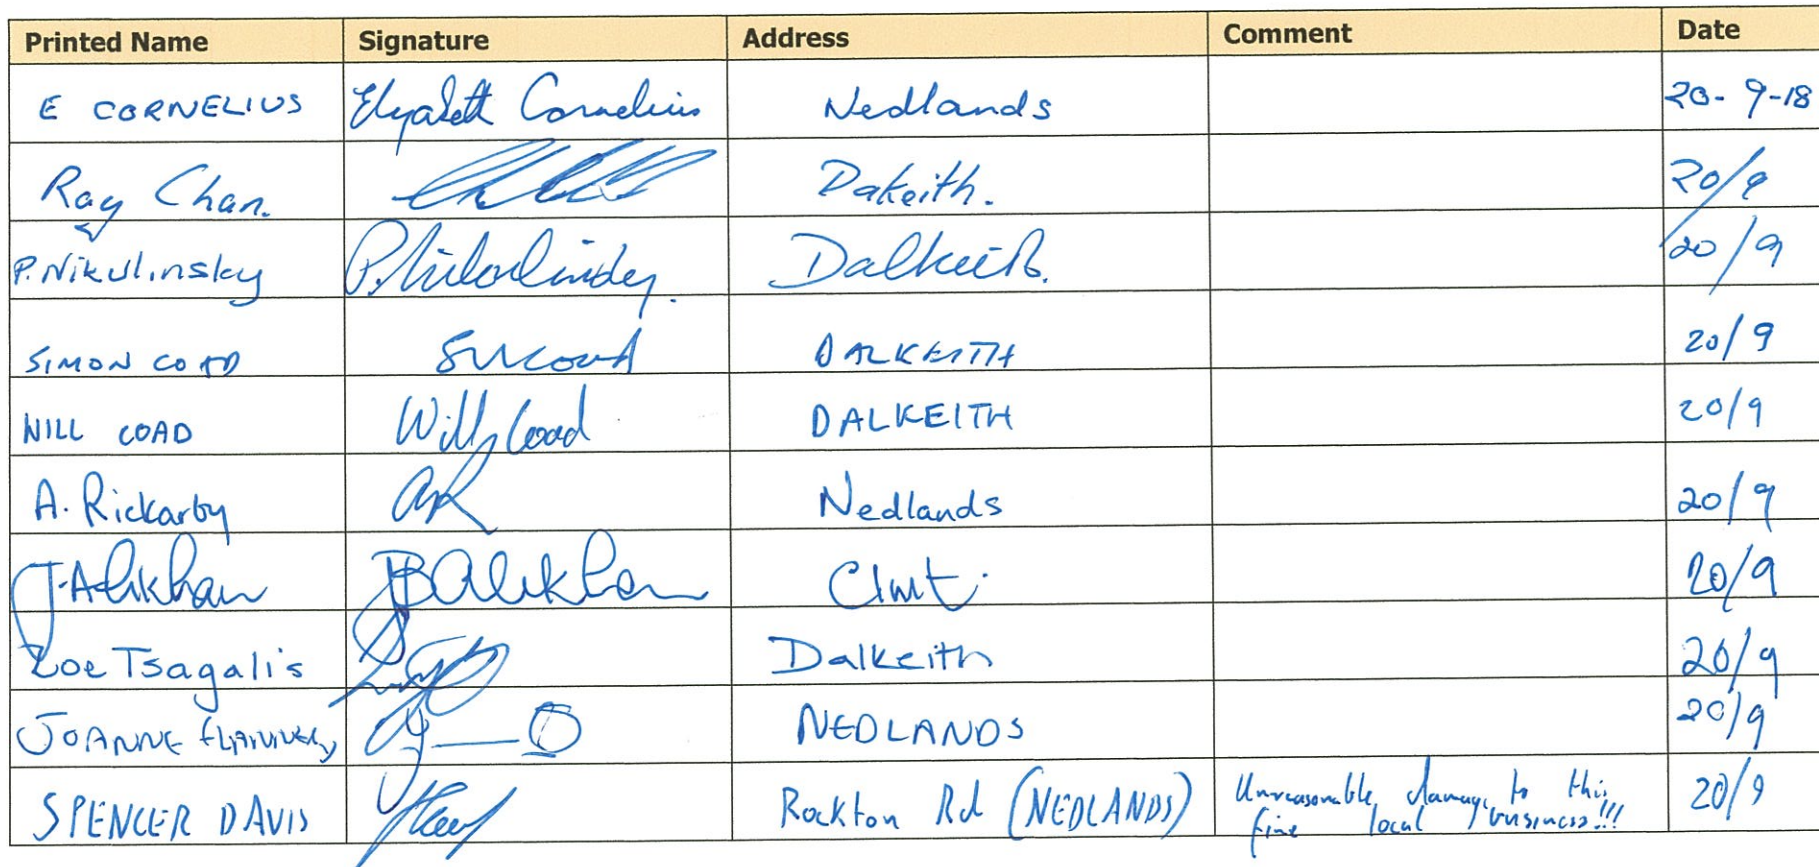 Printed Name Signature Address Comment Date
E CORNELIUS Elyzabeth Cornelius Nedlands 20-9-18
Ray Chan. Dakeith. 20/9
P. Nikulinsky Dalkeith. 20/9
SIMON COAD DALKEITH 20/9
WILL COAD Will Coad DALKEITH 20/9
A. Rickarby AR Nedlands 20/9
J. Alikhan JB Alikhan Clmt. 20/9
Zoe Tsagalis Dalkeith 20/9
JOANNE FLANNERY NEDLANDS 20/9
SPENCER DAVIS Rockton Rd (NEDLANDS) Unreasonable damage to this 20/9
fine local business!!!